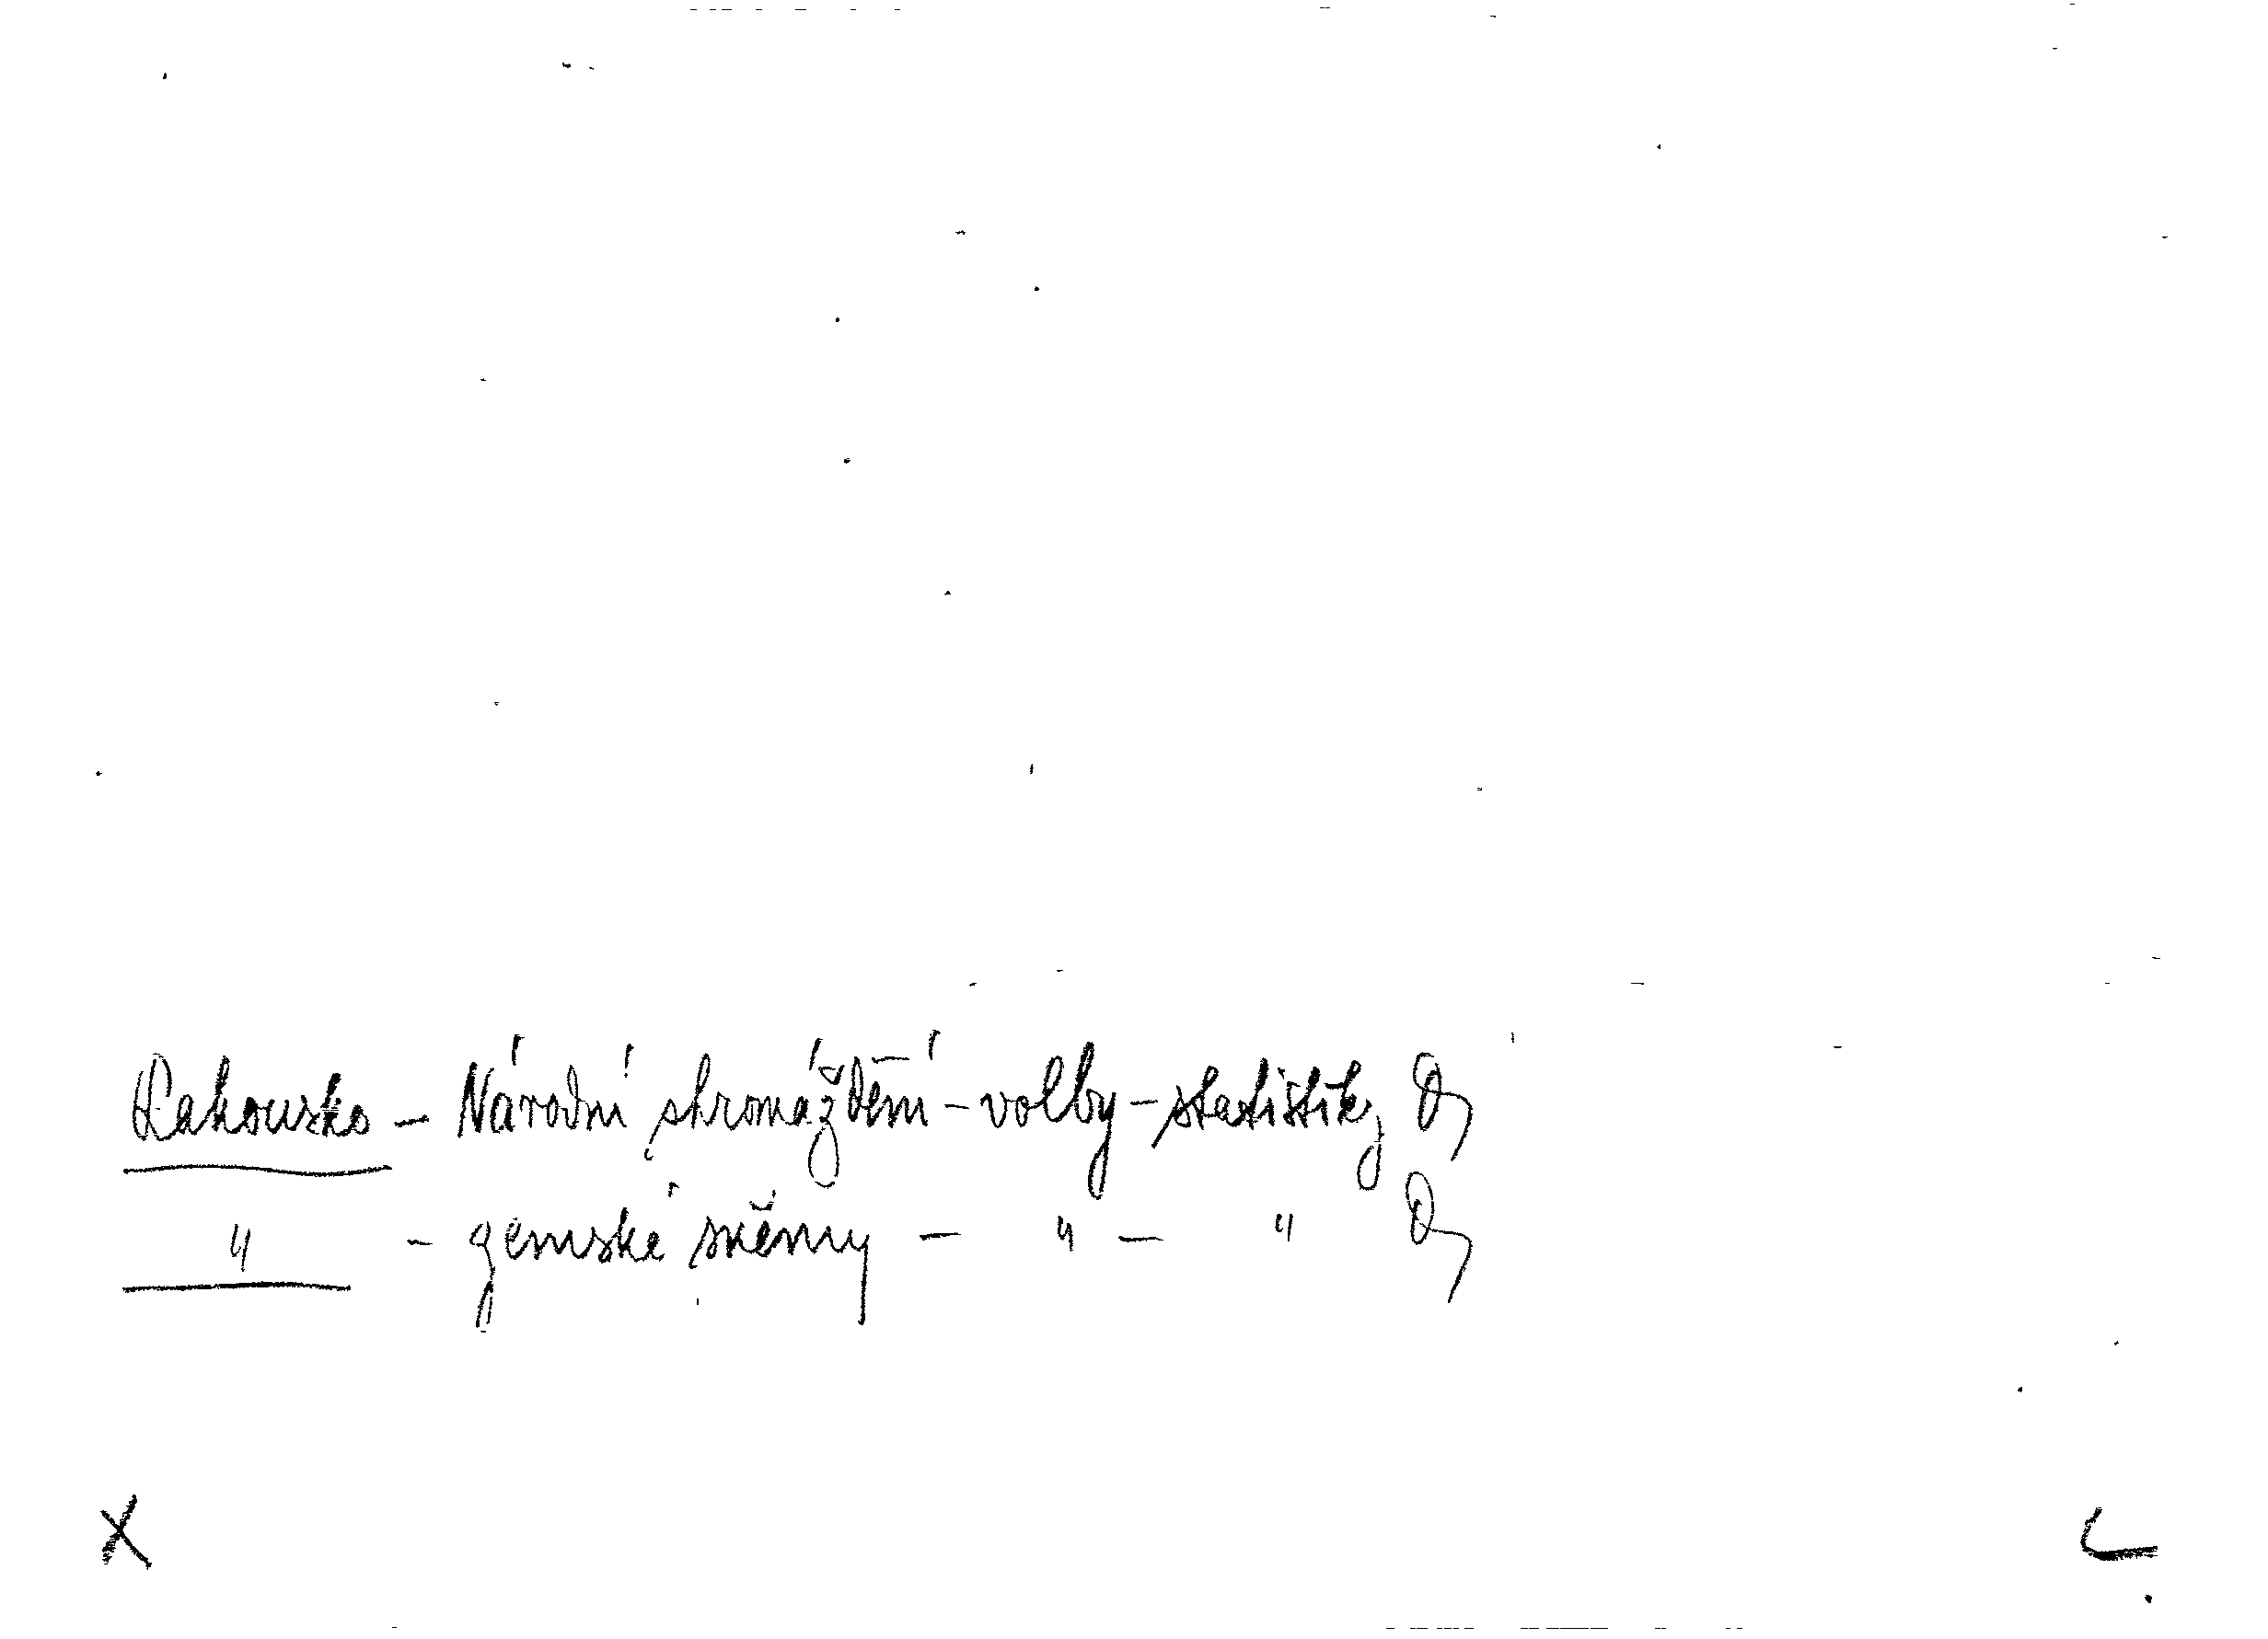 Rakousko - Národní shromáždění - volby - statistiky
" - zemské sněmy - " - "
X